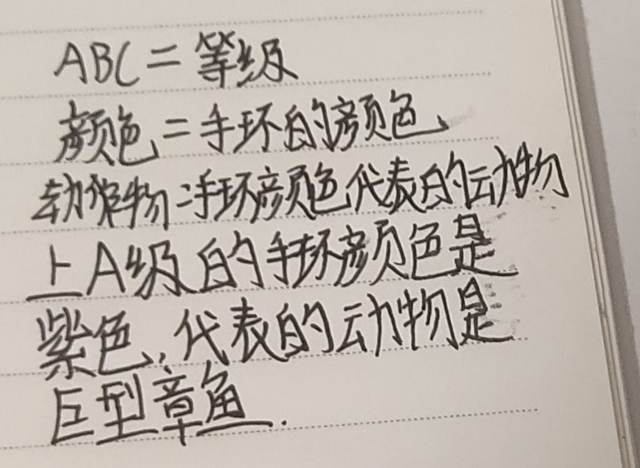 ABC=等级
颜色=手环的颜色
动物:手环颜色代表的动物
上A级的手环颜色是
紫色,代表的动物是
巨型章鱼.